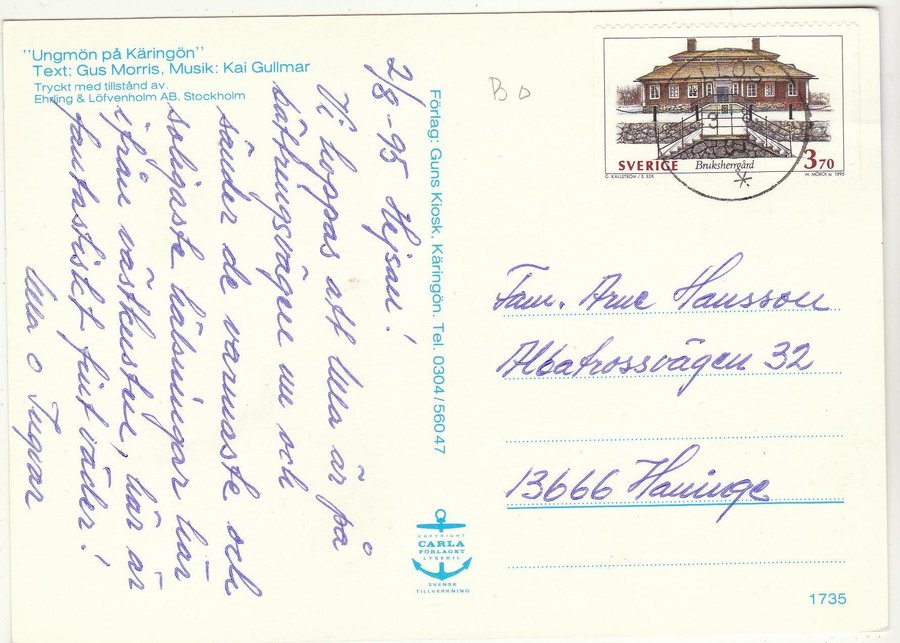 "Ungmön på Käringön"
Text; Gus Morris, Musik: Kai Gullmar
Tryckt med tillstånd av.
Ehrling & Löfvenholm AB. Stockholm
2/8-95 Hejsan!
Vi hoppas att Ulla är på
bättringsvägen nu och
sänder de varmaste och
soligaste hälsningar här
ifrån västkusten, här är
fantastiskt fint väder!
Ulla o Ingvar
Förlag: Guns Kiosk, Käringön. Tel. 0304/56047
COPYRIGHT
CARLA
FÖRLAGET
LYSEKIL
SVENSK
TILLVERKNING
B O
SVERIGE Bruksherrgård 3 70
G. KÄLLSTRÖM / E. EDE M. MÖRCK sc 1995
Fam. Arne Hansson
Albatrossvägen 32
13666 Haninge
1735